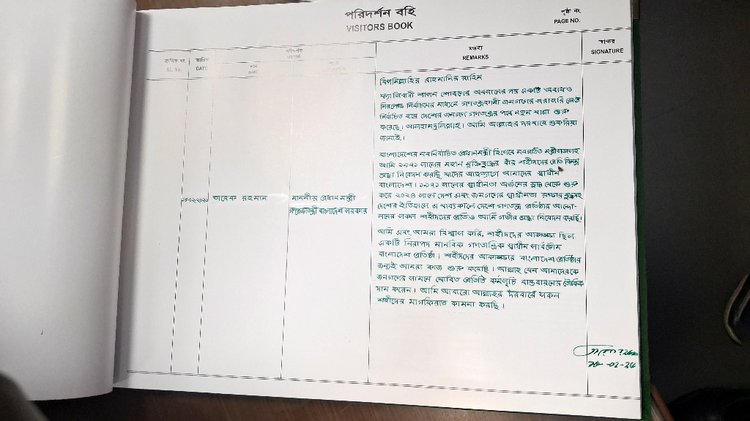 পরিদর্শন বহি
VISITORS BOOK
পৃষ্ঠা নং
PAGE NO.
ক্রমিক নং
SL. No.
তারিখ
DATE
পরিদর্শক
নাম
মন্তব্য
REMARKS
স্বাক্ষর
SIGNATURE
তারেক রহমান
মাননীয় প্রধান মন্ত্রী
গণপ্রজাতন্ত্রী বাংলাদেশ সরকার
বিসমিল্লাহির রাহমানির রাহিম
ফ্যাসিবাদী শাসন শোষণের অবসানের পর একটি অবাধ ও
নিরপেক্ষ নির্বাচনের মাধ্যমে গণতন্ত্রকামী জনগণের সরাসরি ভোটে
নির্বাচিত হয়ে দেশের জনগণ গণতন্ত্রের পথে নতুন যাত্রা শুরু
করেছে। আলহামদুলিল্লাহ। আমি আল্লাহর দরবারে শুকরিয়া
জানাই।
বাংলাদেশের নবনির্বাচিত প্রধানমন্ত্রী হিসেবে নবগঠিত মন্ত্রীসভাসহ
আমি ১৯৭১ সালের মহান মুক্তিযুদ্ধের বীর শহীদদের প্রতি বিনম্র
শ্রদ্ধা নিবেদন করছি যাদের আত্মত্যাগে আমাদের স্বাধীন
বাংলাদেশ। ১৯৭১ সালের স্বাধীনতা অর্জনের যুদ্ধ থেকে শুরু
করে ২০২৪ সালে দেশ এবং জনগণের স্বাধীনতা রক্ষার যুদ্ধসহ
দেশের ইতিহাসে এ যাবৎকালে দেশে গণতন্ত্র প্রতিষ্ঠার আন্দো-
লনের সকল শহীদদের প্রতিও আমি গভীর শ্রদ্ধা নিবেদন করছি।
আমি এবং আমরা বিশ্বাস করি, শহীদদের আকাঙ্ক্ষা ছিল
একটি নিরাপদ মানবিক গণতান্ত্রিক স্বাধীন সার্বভৌম
বাংলাদেশ প্রতিষ্ঠা। শহীদদের আকাঙ্ক্ষার বাংলাদেশ প্রতিষ্ঠার
জন্যই আমরা কাজ শুরু করেছি। আল্লাহ যেন আমাদেরকে
জনগণের সামনে ঘোষিত প্রতিটি কর্মসূচি বাস্তবায়নের তৌফিক
দান করেন। আমি আবারো আল্লাহর দরবারে সকল
শহীদের মাগফিরাত কামনা করছি।